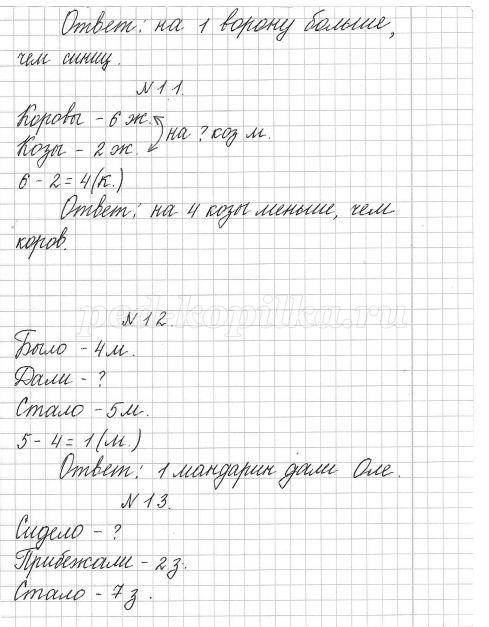 Ответ: на 1 ворону больше,
чем синиц.
N 11.
Коровы - 6 ж.
на ? коз м.
Козы - 2 ж.
6 - 2 = 4 (к.)
Ответ: на 4 козы меньше, чем
коров.
ped-kopilka.ru
N 12.
Было - 4 м.
Дали - ?
Стало - 5 м.
5 - 4 = 1 (м.)
Ответ: 1 мандарин дали Оле.
N 13.
Сидело - ?
Прибежали - 2 з.
Стало - 7 з.